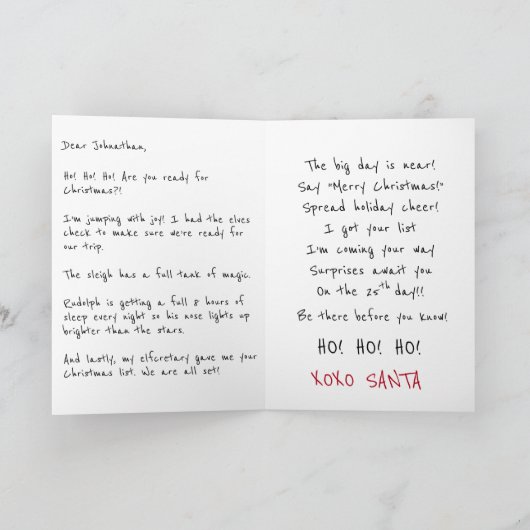 Dear Johnathan,
Ho! Ho! Ho! Are you ready for
Christmas?!
I'm jumping with joy! I had the elves
check to make sure we're ready for
our trip.
The sleigh has a full tank of magic.
Rudolph is getting a full 8 hours of
sleep every night so his nose lights up
brighter than the stars.
And lastly, my elfcretary gave me your
Christmas list. We are all set!
The big day is near!
Say "Merry Christmas!"
Spread holiday cheer!
I got your list
I'm coming your way
Surprises await you
On the 25th day!!
Be there before you know!
HO! HO! HO!
XOXO SANTA